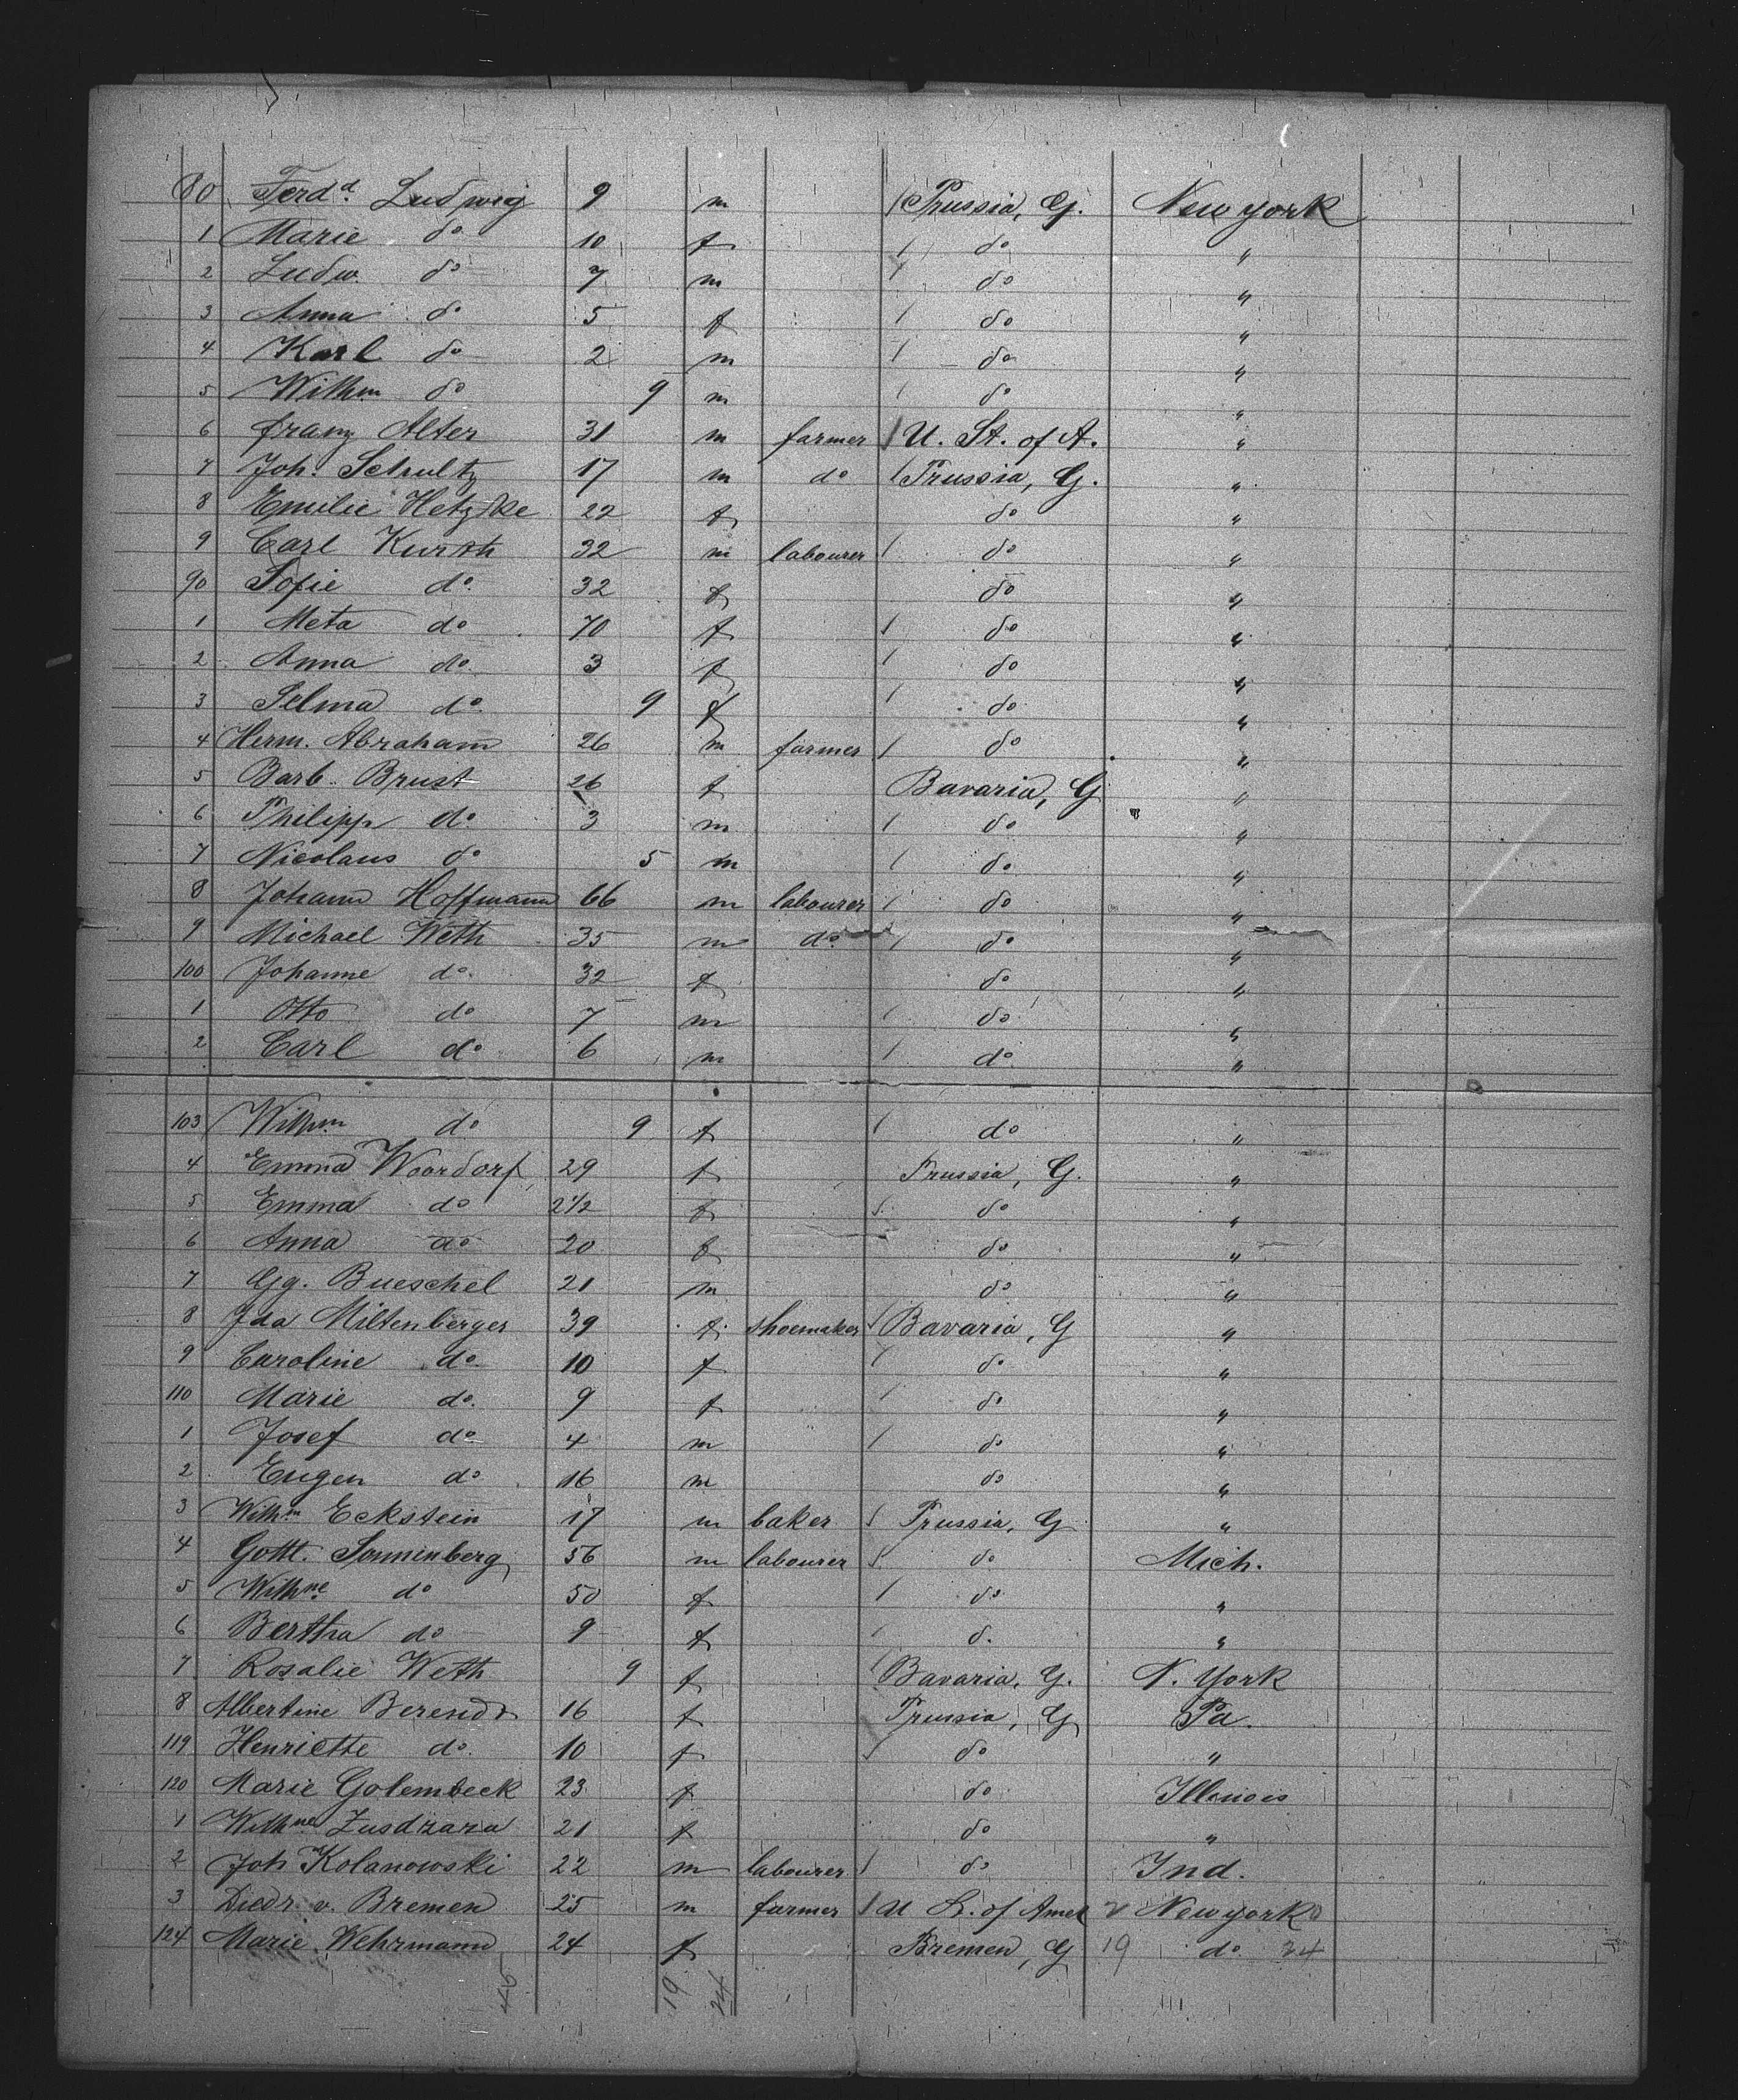 80 Ferdd. Ludwig 9 m Prussia, G. New york
1 Marie do 10 f do "
2 Ludw. do 7 m do "
3 Anna do 5 f do "
4 Karl do 2 m do "
5 Wilhm do 9 m do "
6 Franz Alter 31 m farmer U. St. of A. "
7 Joh. Schultz 17 m do Prussia, G. "
8 Emilie Hetzke 22 f do "
9 Carl Kursth 32 m labourer do "
90 Sofie do. 32 f do "
1 Meta do 10 f do "
2 Anna do. 3 f do "
3 Selma do. 9 f do "
4 Herm. Abraham 26 m farmer do "
5 Barb. Brust 26 f Bavaria, G "
6 Philipp do. 3 m do "
7 Nicolaus do 5 m do "
8 Johann Hoffmann 66 m labourer do "
9 Michael Weth 35 m do do "
100 Johanne do. 32 f do "
1 Otto do 7 m do "
2 Carl do. 6 m do. "
103 Wilhm do 9 f do "
4 Emma Woordorf 29 f Prussia, G. "
5 Emma do 2 1/2 f do "
6 Anna do 20 f do "
7 Gg. Bueschel 21 m do "
8 Ida Miltenberger 39 f. shoemaker Bavaria, G "
9 Caroline do. 10 f do "
110 Marie do. 9 f do "
1 Josef do 4 m do "
2 Eugen do 16 m do "
3 Wilhm Eckstein 17 m baker Prussia, G "
4 Gottl. Sonnenberg 56 m labourer do Mich.
5 Wilhne. do 50 f do "
6 Bertha do 9 f d. "
7 Rosalie Weth 9 f Bavaria, G. N. York
8 Albertine Berendt 16 f Prussia, G Pa.
119 Henriette do. 10 f do "
120 Marie Golembeck 23 f do Illinois
1 Wilhne Zusdzara 21 f do "
2 Joh Kolanowski 22 m labourer do Ind.
3 Diedr. v. Bremen 25 m farmer U S. of Amer New york
124 Marie Wehrmann 24 f Bremen, G 19 do. 24
45 19 24